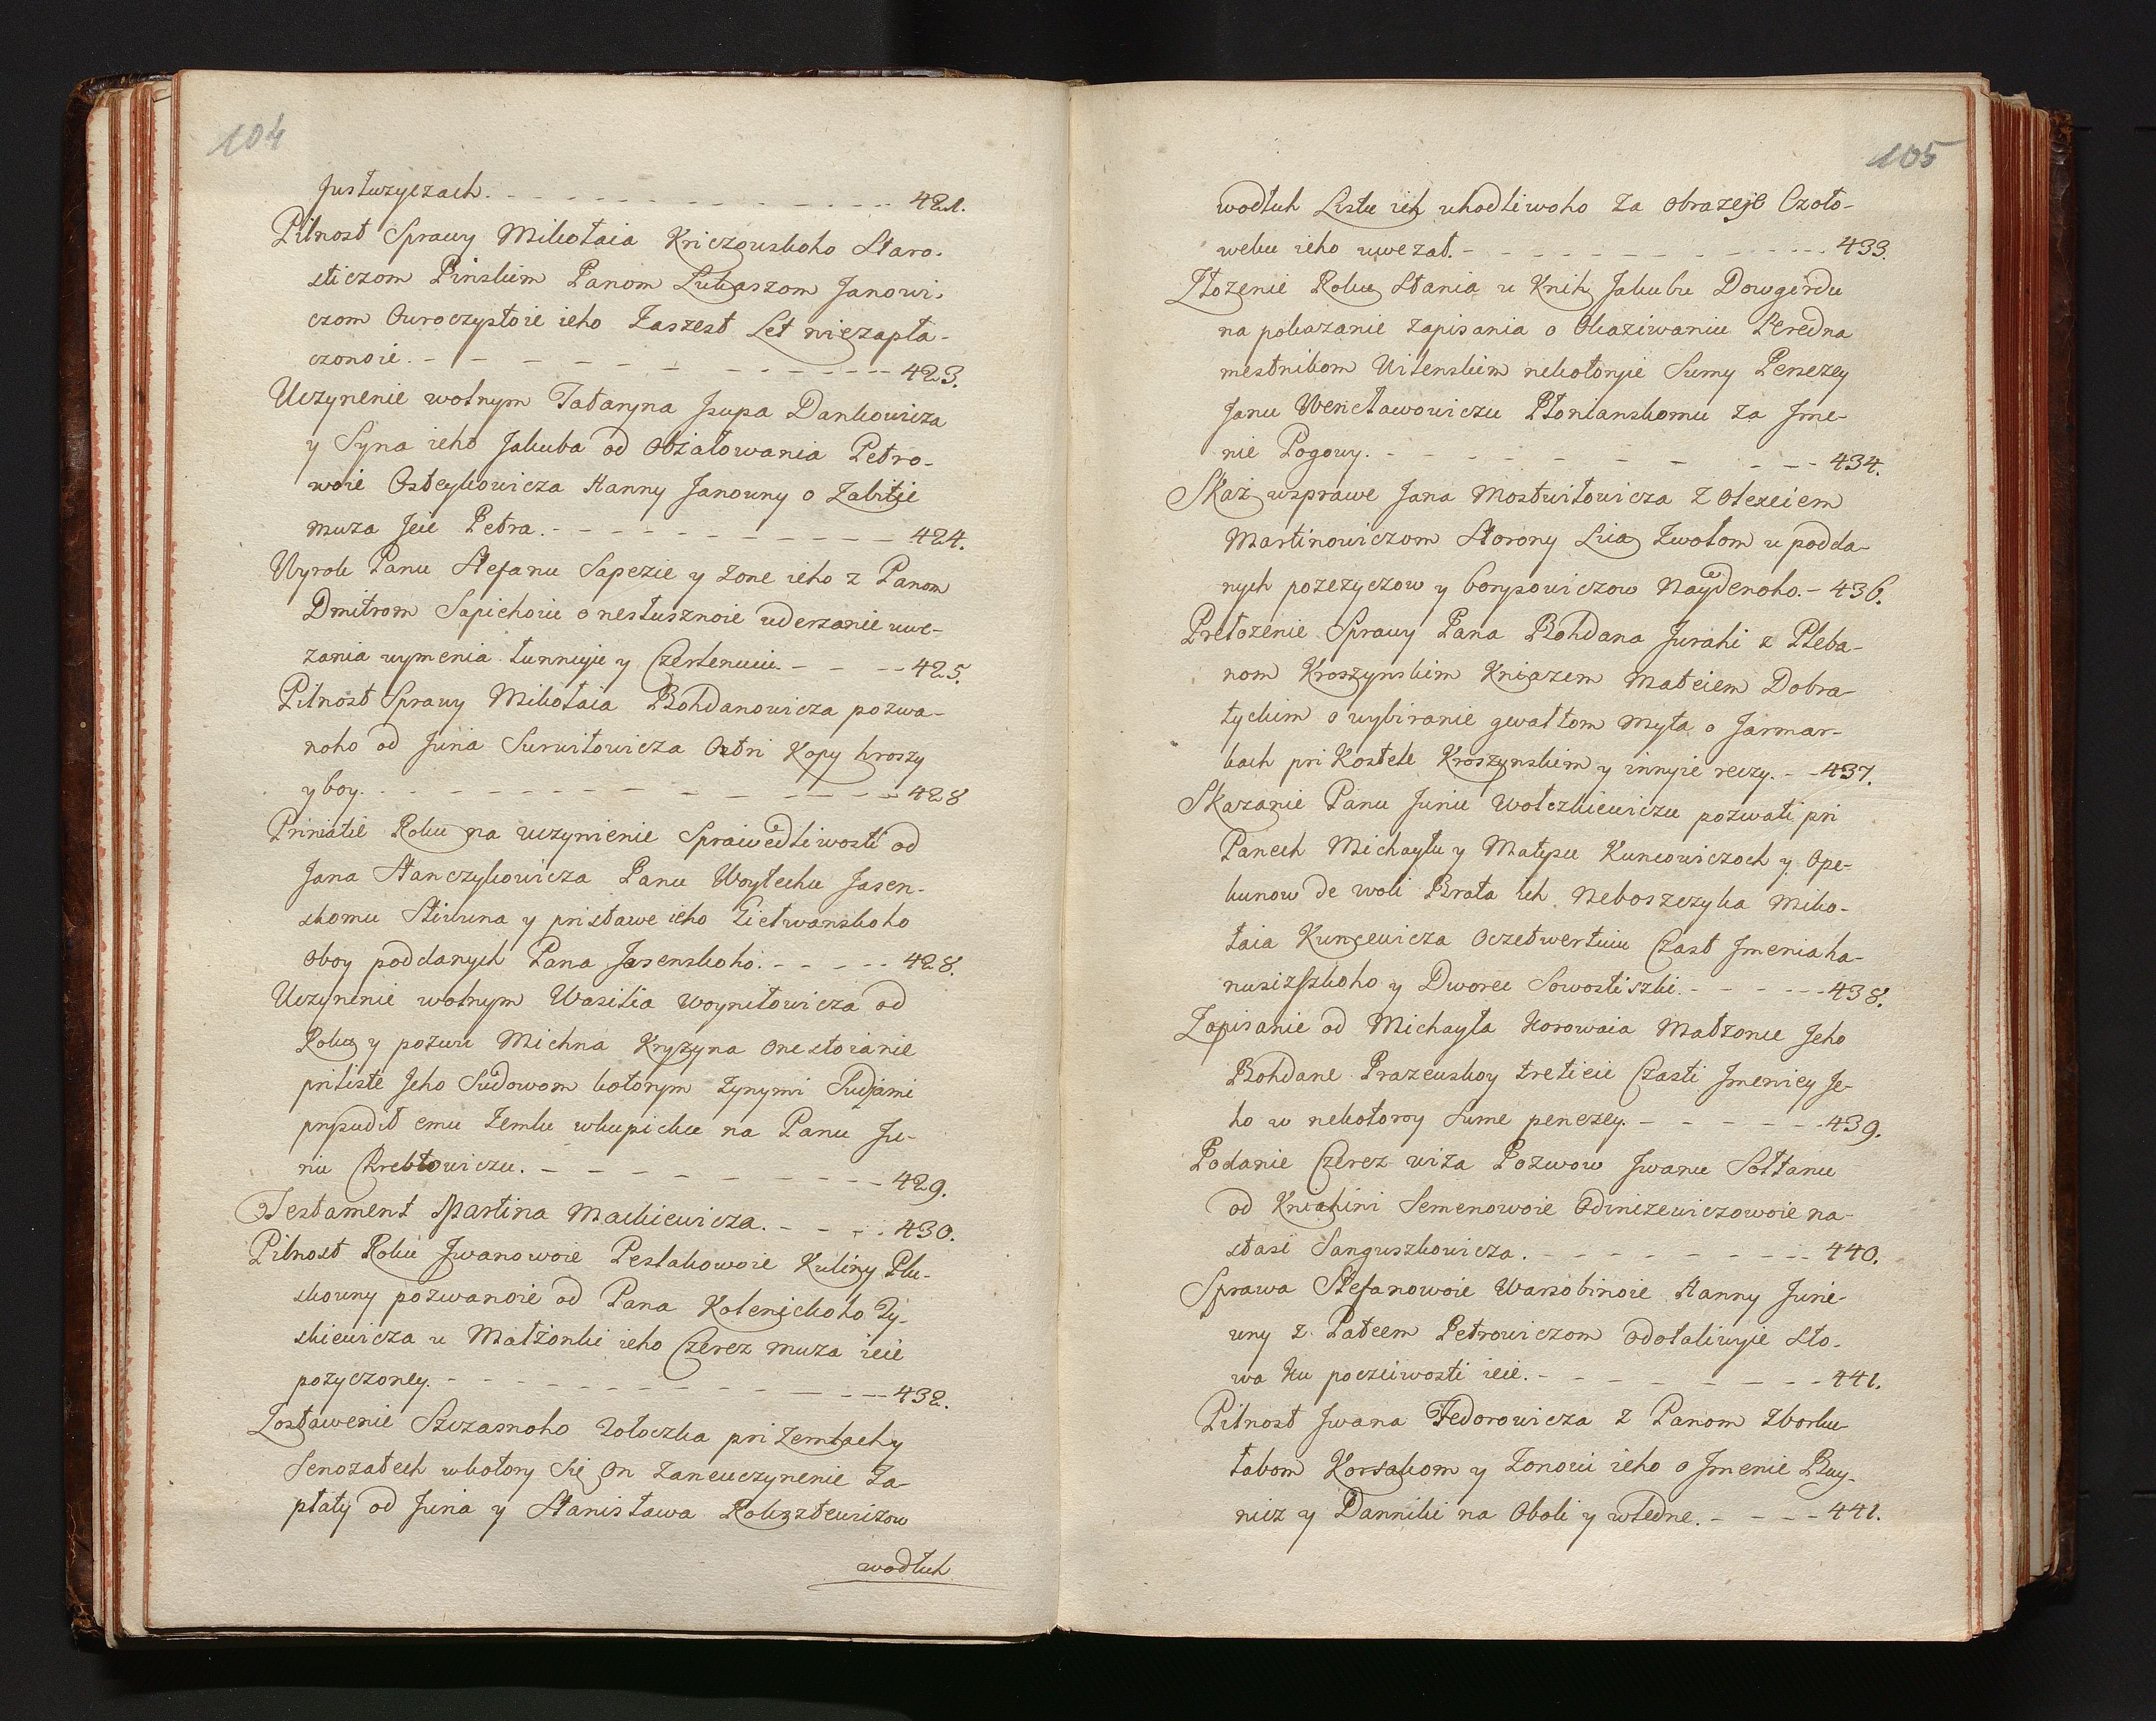 104
Justwzyczach. 421.
Pilnost Sprawy Mikołaia Kriczouskoho Staro-
sticzom Pinskim Panom Lukaszom Janowi-
czom Ouroczystoie ieho Zaszest Let niezapła-
czonoie. 423.
Uczynenie wolnym Tataryna Jsupa Dankowicza
y Syna ieho Jakuba od Obiałowania Petro-
woie Osteykowicza Hanny Janouny o Zabitie
muza Jeie Petra. 424.
Wyrok Panu Stefanu Sapezie y Zone ieho z Panom
Dmitrom Sapichoiu o nesłusznoie uderzanie uwe-
zania wymenia y 425.
Pilnost Sprawy Mikołaia Bohdanowicza pozwa-
noho od Juria Surwiłowicza Otri Kopy hroszy
y boy. 428
Priniatie Roku na uczynienie Sprawedliwosti od
Jana Stanczykowicza Panu Woytechu Jasen-
skomu Stiruna y pristawe ieho Eietwanskoho
oboy poddanych Pana Jasenskoho. 428.
Uczynenie wolnym Wasilia Woyniłowicza od
Roku y pozwu Michna Kryzyna onestoianie
priliste Jeho Sudowom kotorym Zynymi Sudjami
prysudił emu Zemlu wkupicku na Panu Ju-
riu Chrebtowiczu. 429.
Testament Martina Mackiewicza. 430.
Pilnost Roku Jwanowoie Pestakowoie Kuliny Plu-
skouny pozwanoie od Pana Kolenickoho Ty-
skiewicza u Małżonki ieho Czerez muza ieie
pozyczoney. 432.
Zostawenie Szczasnoho Wołoczka pri Zemlach y
Senozatech wkotory Sie On Zaneuczynenie Za-
płaty od Juria y Stanisława
wodłuh
105
wodłuh Listu ich uhodliwoho Za obrazeje Czoło-
weku ieho uwezał. 433.
Złozenie Roku Stania u Knih Jakubu Dowgirdu
na pokazanie zapisania o Okaziwaniu Peredna
mestnikom Uilenskim nekotoryie Sumy Penezey
Janu Wencławowiczu Płonianskomu za Jme-
nie Pogowy. 434.
Skaz wsprawe Jana Mostwiłowicza z Olexeiem
Martinowiczom Storony Lica Zwołom u podda-
nych pozezyczow y borysowiczow Naydenoho. 436.
Prełozenie Sprawy Pana Bohdana Jurahi z Pleba-
nom Kroszynskim Kniazem Mateiem Dobra-
tyckim o wybiranie gwałtom Myta o Jarmar-
kach pri Kostele Kroszynskim y innyie reczy. 437.
Skazanie Panu Juriu Wołczkiewiczu pozwati pri
Panech Michayłu y Matysu Kuncowiczoch y Ope-
kunow de woli Brata Ich Neboszczyka Miko-
łaia Kuncewicza Oczetwertuiu Czast Jmenia ha-
nusizszkoho y Dworec Sowostiszki. 438.
Zapisanie od Michayła Horowaia Małzonce Jeho
Bohdane Prazeuskoy tretieie Czasti Jmeniey Je-
ho w nekotoroy Sume penezey. 439.
Podanie Czerez wiża Pozwow Jwanu Sołtanu
od Kniahini Semenowoie Odincewiczowoie na-
stasi Sanguszkowicza. 440.
Sprawa Stefanowoie Warsobinoie Hanny Juri-
uny z Pateem Petrowiczom odotaliwyie sło-
wa Ku poczciwosti ieie. 441.
Pilnost Jwana Fedorowicza z Panom Zborku-
łabom Korsakom y Zonoiu ieho o Jmenie Buy-
nicz y Danniki na Oboli y wledne. 441.